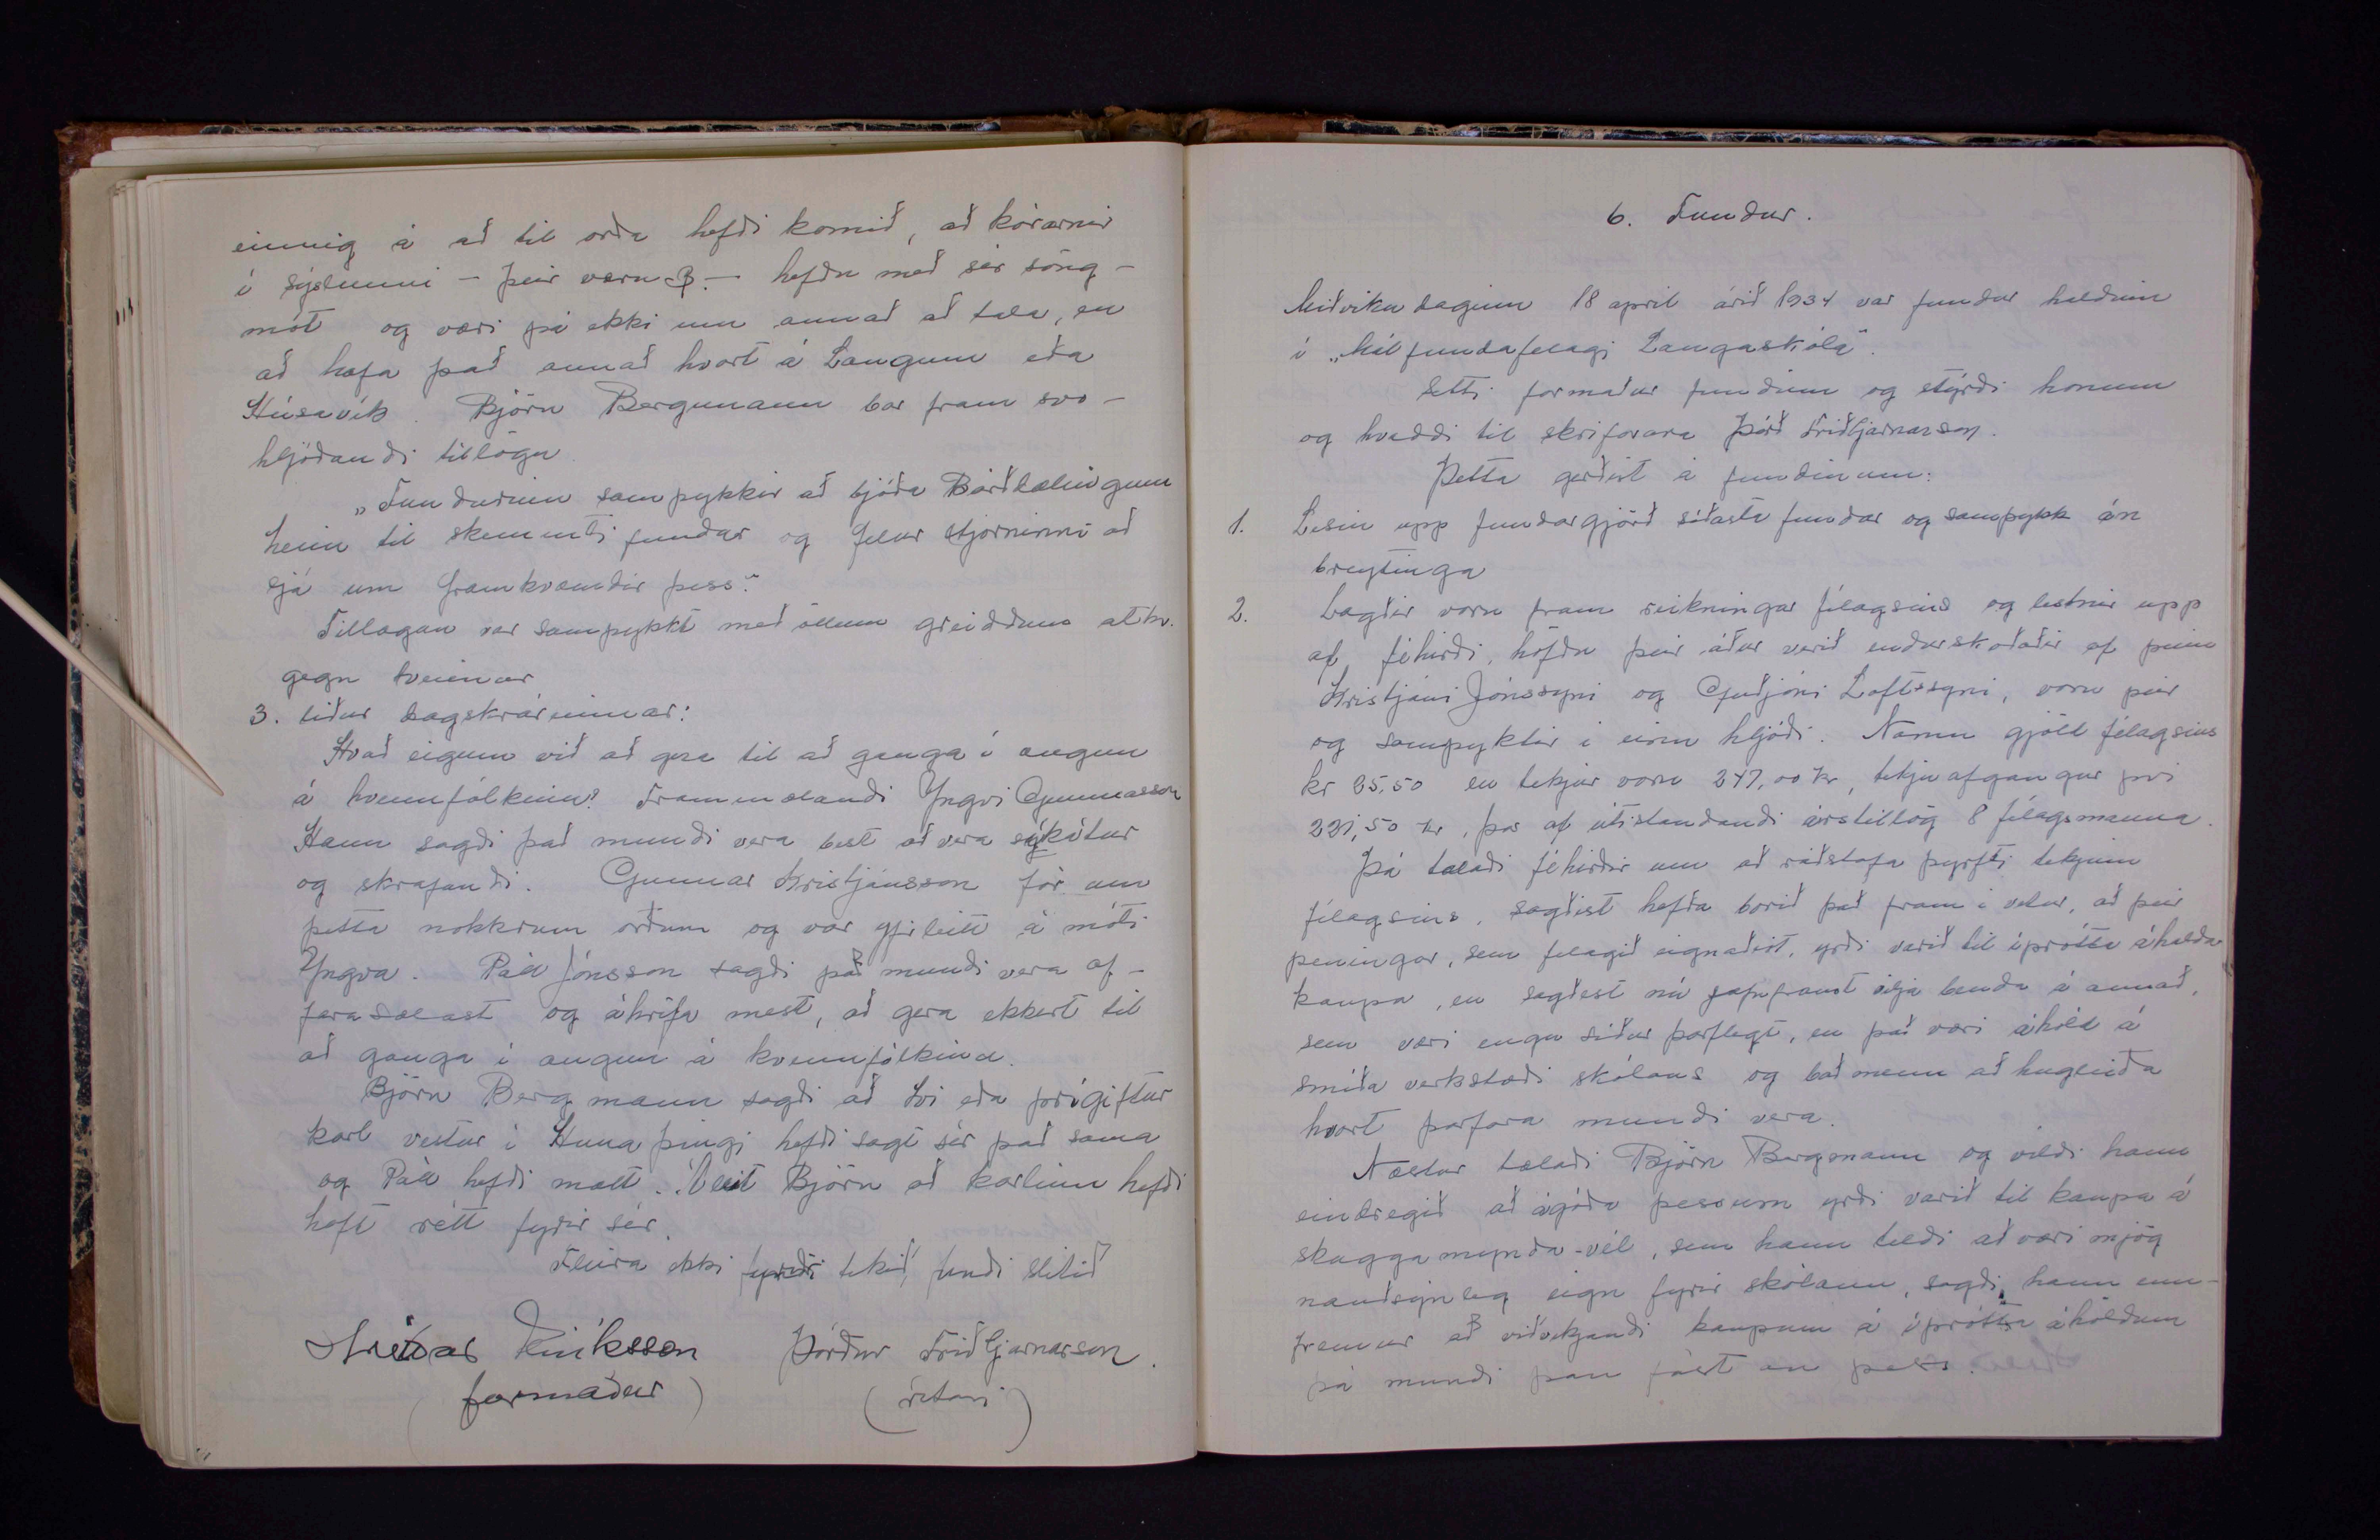 einnig á að til orða hefði komið, að kórarnir
í sýslunni - þeir væru 3. - hefðu með sér söng-
mót og væri þá ekki um annað að tala, en
að hafa það annað hvort á Laugum eða
Húsavík. Björn Bergmann bar fram svo-
hljóðandi tillögu
„Fundurinn samþykkir að bjóða Bárðdælingum
heim til skemmtifundar og felur stjórninni að
sjá um framkvæmdir þess."
Tillagan var samþykkt með öllum greiddum atkv.
gegn tveimur
3. liður dagskrárinnar:
Hvað eigum við að gera til að ganga í augun
á kvennfólkinu? Frammælandi Yngvi Gunnarsson
Hann sagði það mundi vera best að vera sýkátur
og skrafandi. Gunnar Kristjánsson fór um
þetta nokkrum orðum og var yfirleitt á móti
Yngva. Páll Jónsson sagði það mundi vera af-
farasælast og áhrifa mest, að gera ekkert til
að ganga í augun á kvennfólkinu.
Björn Bergmann sagði að tví eða þrígiftur
karl vestur í Húnaþingi hefði sagt sér það sama
og Páll hefði mælt. Áleit Björn að karlinn hefði
haft rétt fyrir sér.
Fleira ekki fyrir tekið, fundi slitið
Eiríksson Þórður Friðbjarnarson.
(formaður) (ritari)
6. Fundur.
Miðvikudaginn 18 apríl árið 1934 var fundur haldinn
í „Málfundafelagi Laugaskóla".
Setti formaður fundinn og stýrði honum
og kvaddi til skrifara Þórð Friðbjarnarson.
Þetta gerðist á fundinum:
1. Lesin upp fundargjörð síðasta fundar og samþykk án
breytinga
2. Lagðir voru fram reikningar félagsins og lestnir upp
af féhirði, höfðu þeir áður verið endurskoðaðir af þeim
Kristjáni Jónssyni og Guðjóni Loftssyni, voru þeir
og samþyktir í einu hljóði. Námu gjöld félagsins
kr 25.50 en tekjur voru 247,00 kr, tekjuafgangur því
221,50 kr, þar af útistandandi árstillög 8 félagsmanna.
Þá talaði féhirðir um að ráðstafa þyrfti tekjum
félagsins, sagðist hafða borið það fram í vetur, að þeir
peningar, sem felagið eignaðist, yrði varið til íþrótta áhalda
kaupa, en sagðist nú jafnframt vilja benda á annað,
sem væri engu síður þarflegt, en það væri áhöld á
smíða verkstæði skólans og bað menn að hugleiða
hvort þarfara mundi vera.
Næstur talaði Björn Bergmann og vildi hann
eindregið að ágóða þessum yrði varið til kaupa á
skuggamynda-vél, sem hann teldi að væri mjög
nauðsynleg eign fyrir skólann, sagði hann enn-
fremur að viðvekjandi kaupum á íþrótta áhöldum
þá mundi þau fást án þess.